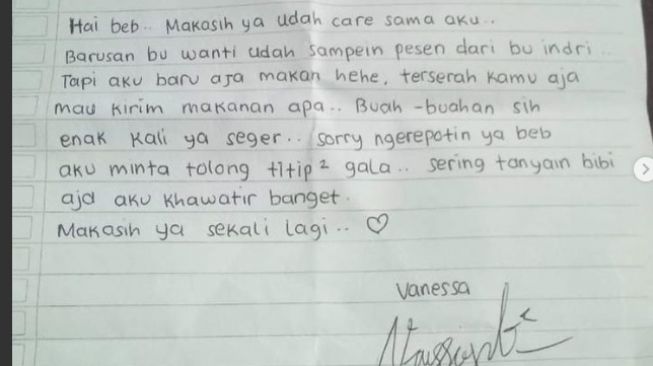 Hai beb.. Makasih ya udah care sama aku..
Barusan bu wanti udah sampein pesen dari bu indri..
Tapi aku baru aja makan hehe, terserah kamu aja
mau kirim makanan apa.. Buah-buahan sih
enak kali ya seger.. sorry ngerepotin ya beb
aku minta tolong titip² gala.. sering tanyain bibi
aja aku khawatir banget.
Makasih ya sekali lagi.. ♡
Vanessa